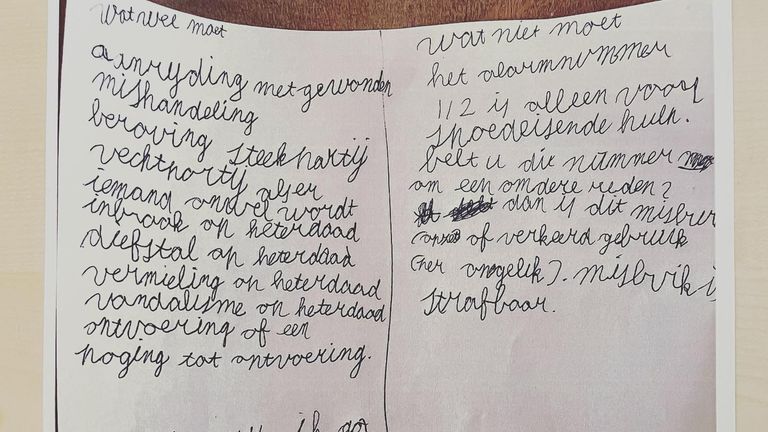 wat wel moet
aanryding met gewonden
mishandeling
beroving steekpartij
vechtparty als er
iemand onwel wordt
inbraak op heterdaad
diefstal op heterdaad
vernieling op heterdaad
vandalisme op heterdaad
ontvoering of een
poging tot ontvoering.
ik go
wat niet moet
het alarmnummer
112 is alleen voor
spoedeisende hulp.
belt u dit nummer
om een andere reden?
dan is dit misbru
of verkeerd gebruik
(per ongelik). misbruik is
strafbaar.